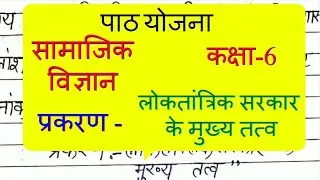 पाठ योजना
सामाजिक विज्ञान
कक्षा-6
प्रकरण -
लोकतांत्रिक सरकार के मुख्य तत्व
मुख्य तत्व"